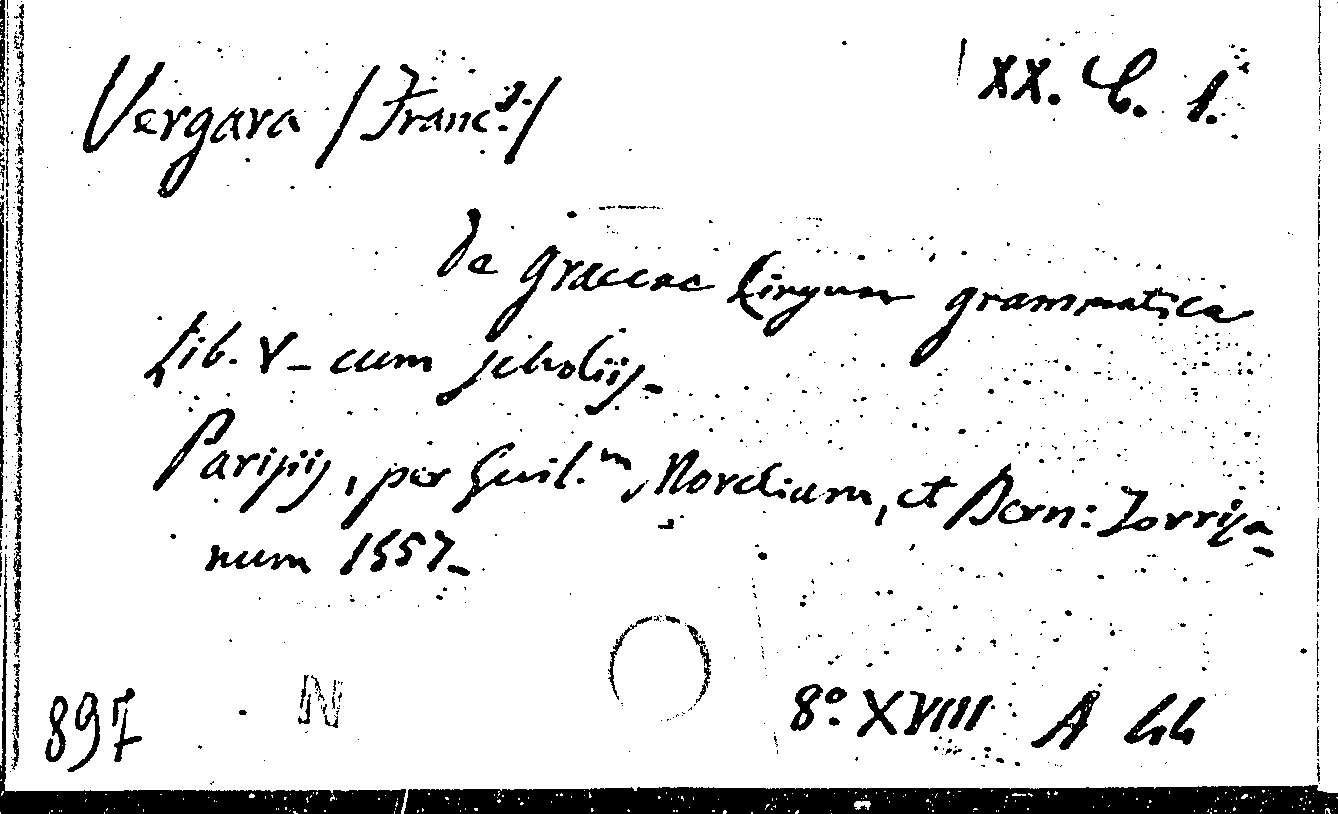 Vergara /Franc.s/
XX. C. 1.
de graecae Linguae grammatica
Lib. V_ cum scholiis_
Parisiis, per Guil.m Morelium, et Bern: Torrisa_
num 1557_
897
N
8o. XVIII A 44